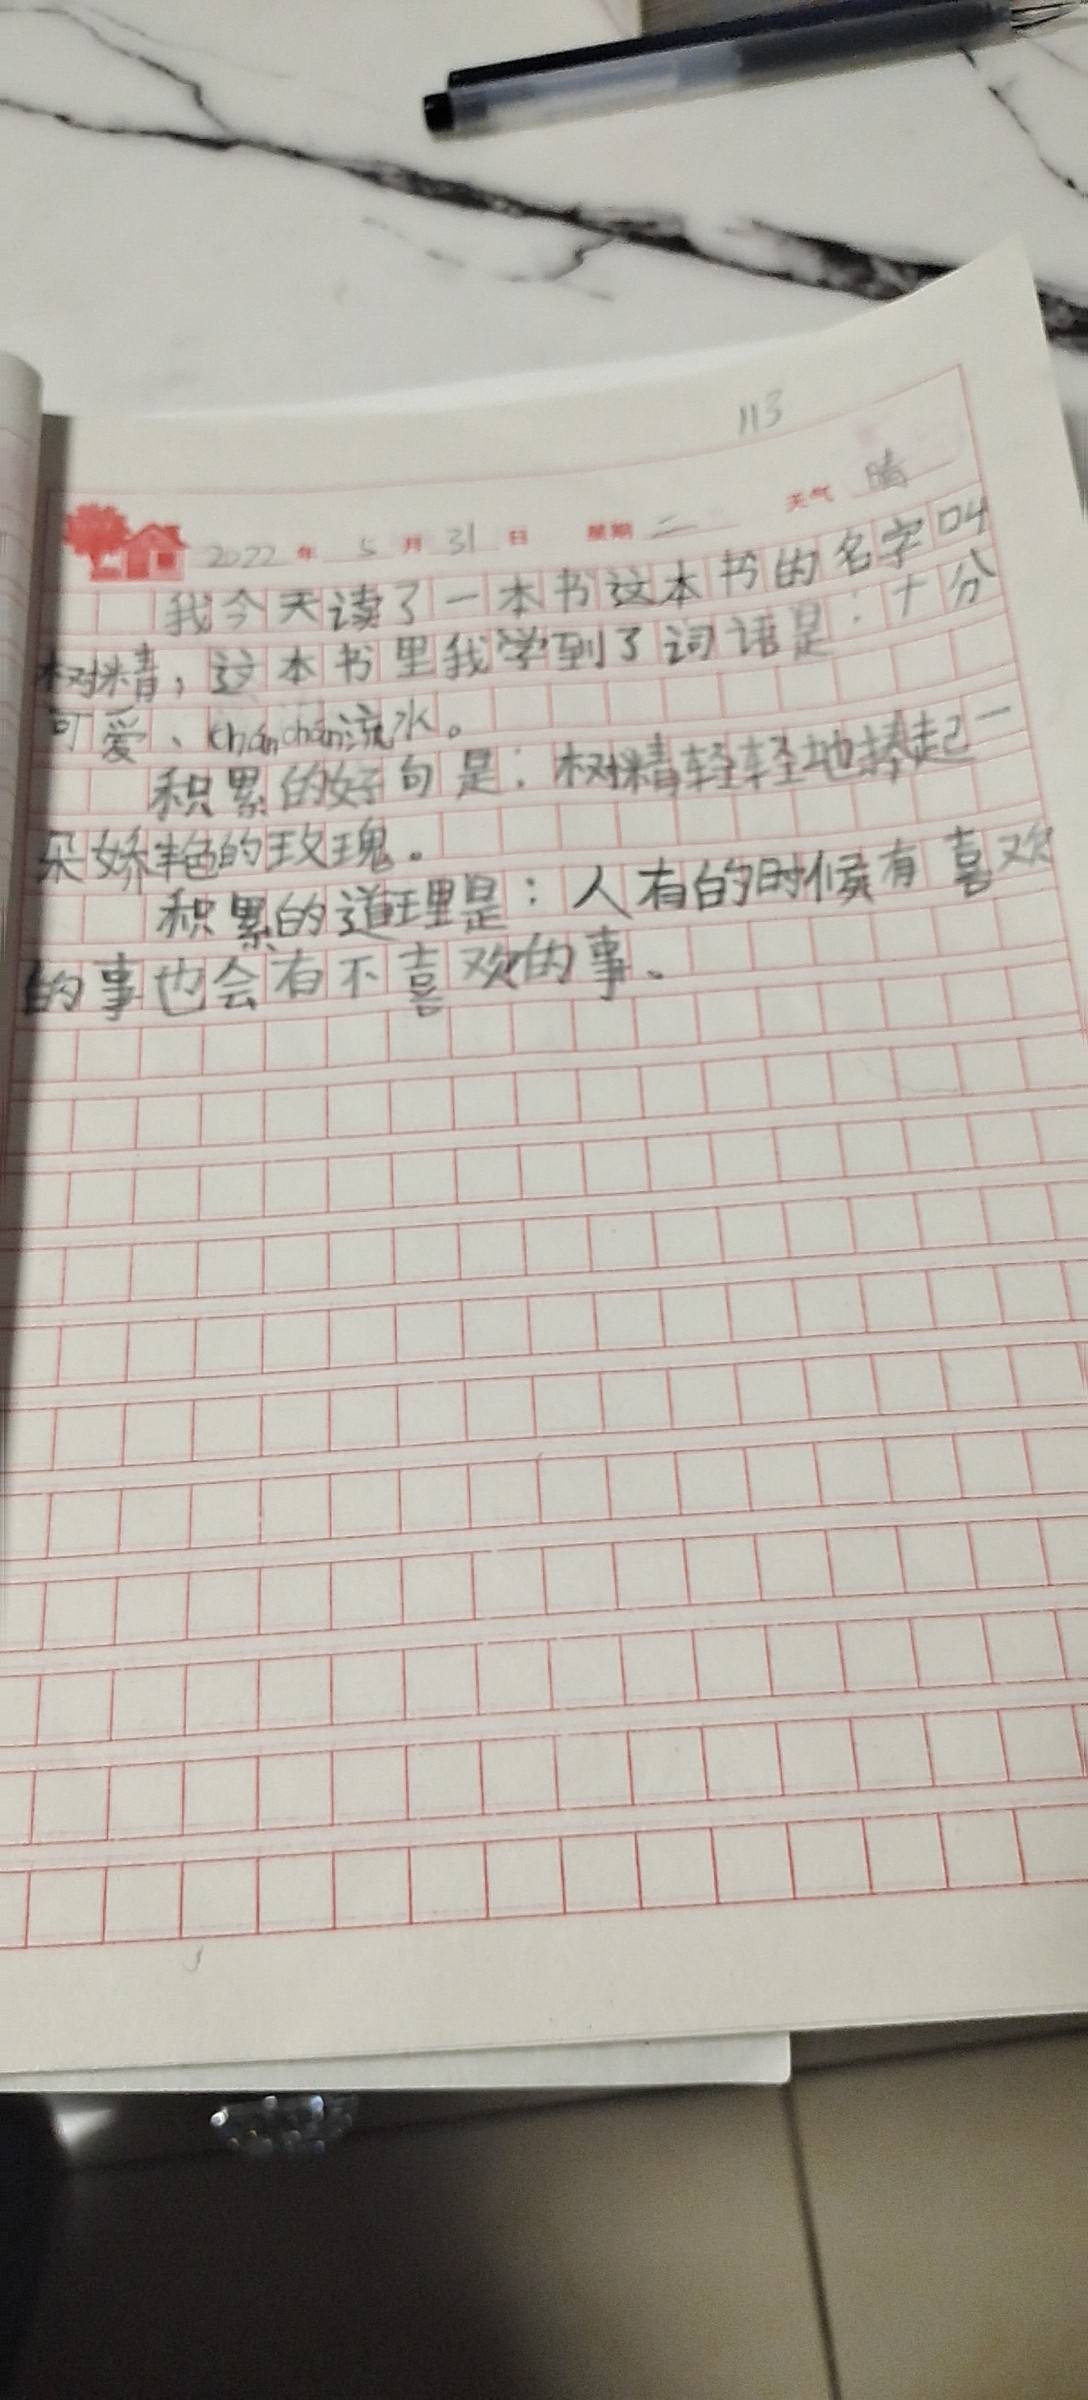 113
2022年 5月31日 星期二 天气 晴
我今天读了一本书这本书的名字叫
树精，这本书里我学到了词语是：十分
可爱、chánchán流水。
积累的好句是：树精轻轻地捧起一
朵娇艳的玫瑰。
积累的道理是：人有的时候有喜欢
的事也会有不喜欢的事。